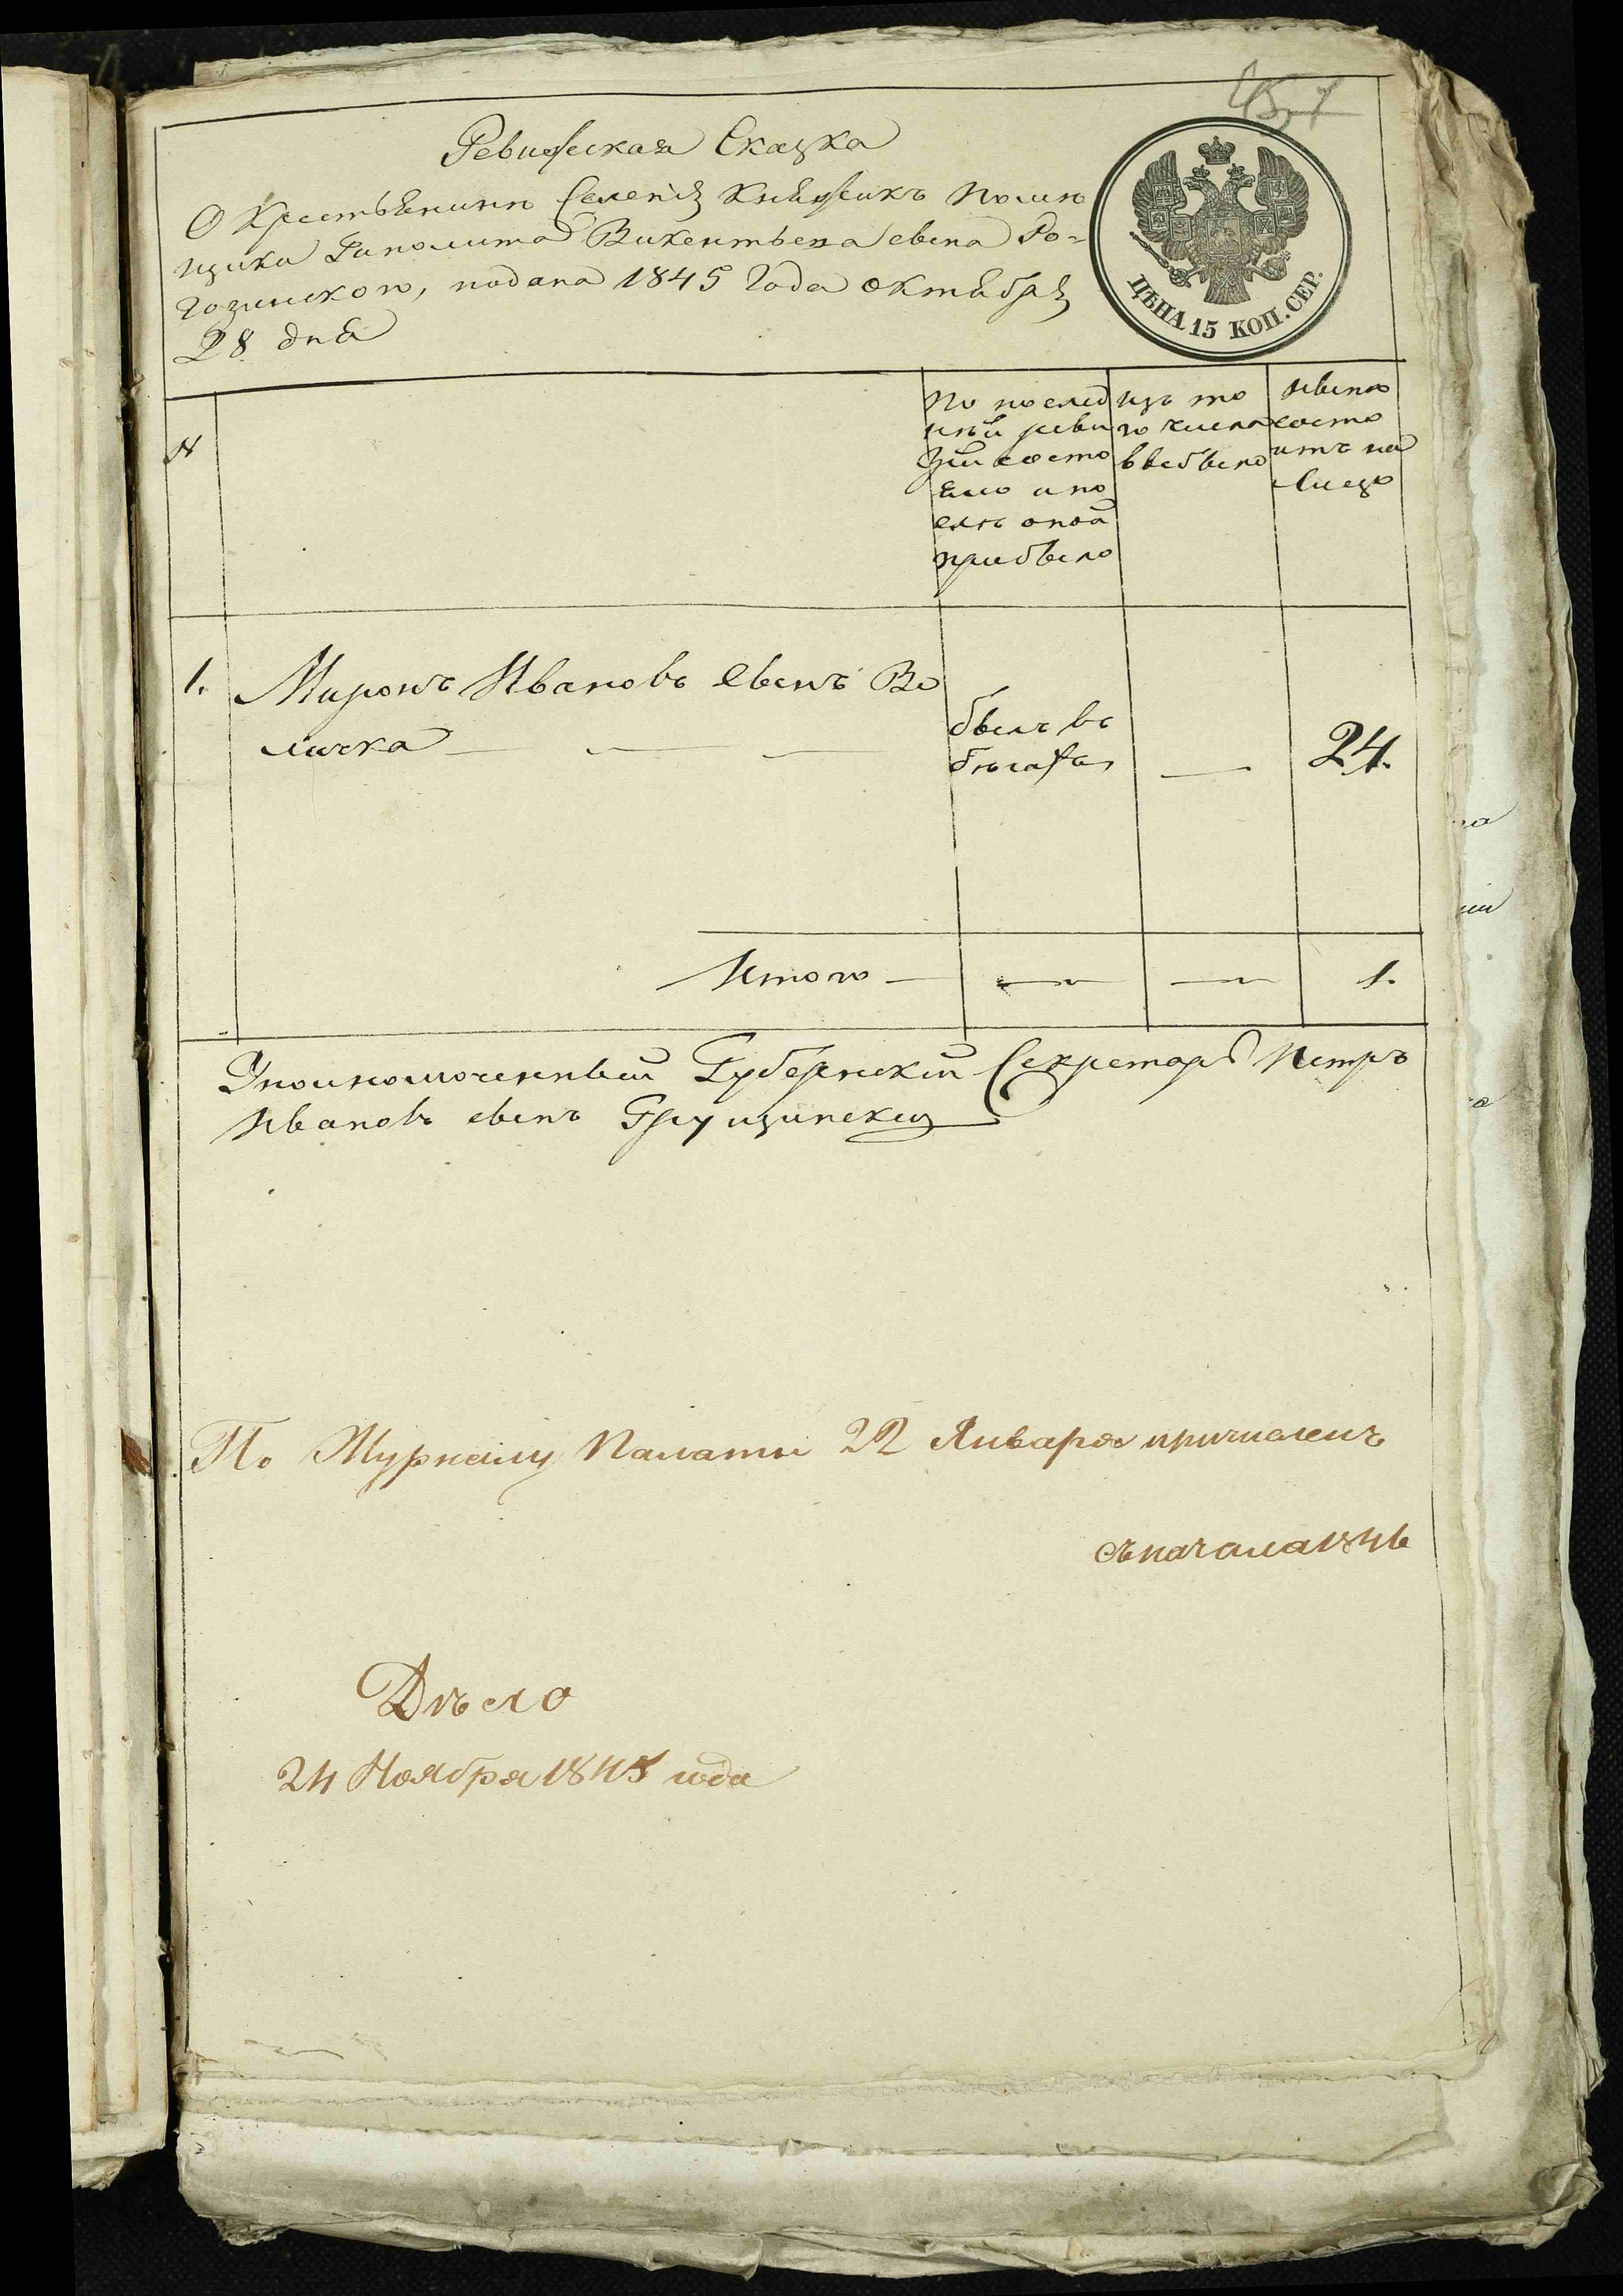 Ревижская Сказка
О Крестьянинѣ Селенія Княжикъ помѣ
щика Гиполита Викентьева сына Ро=
гозинскаго, подана 1845 года октября
28 дня
ЦѢНА 15 КОП. СЕР.
№
По послѣд
нѣй реви
зіи состо
яло и по
слѣ оной
прибыло
изъ то
го числа
выбыло
нынѣ
состо
итъ на
лицо
1. Миронъ Ивановъ сынъ Во
личка
былъ въ
бѣгахъ
24.
Итого
1.
Уполномоченный Губернскій Секретарь Петръ
Ивановъ сынъ Грущинскій
По Журналу Палаты 22 Января причисленъ
съ начала 1846
Дѣло
24 Ноября 1845 года